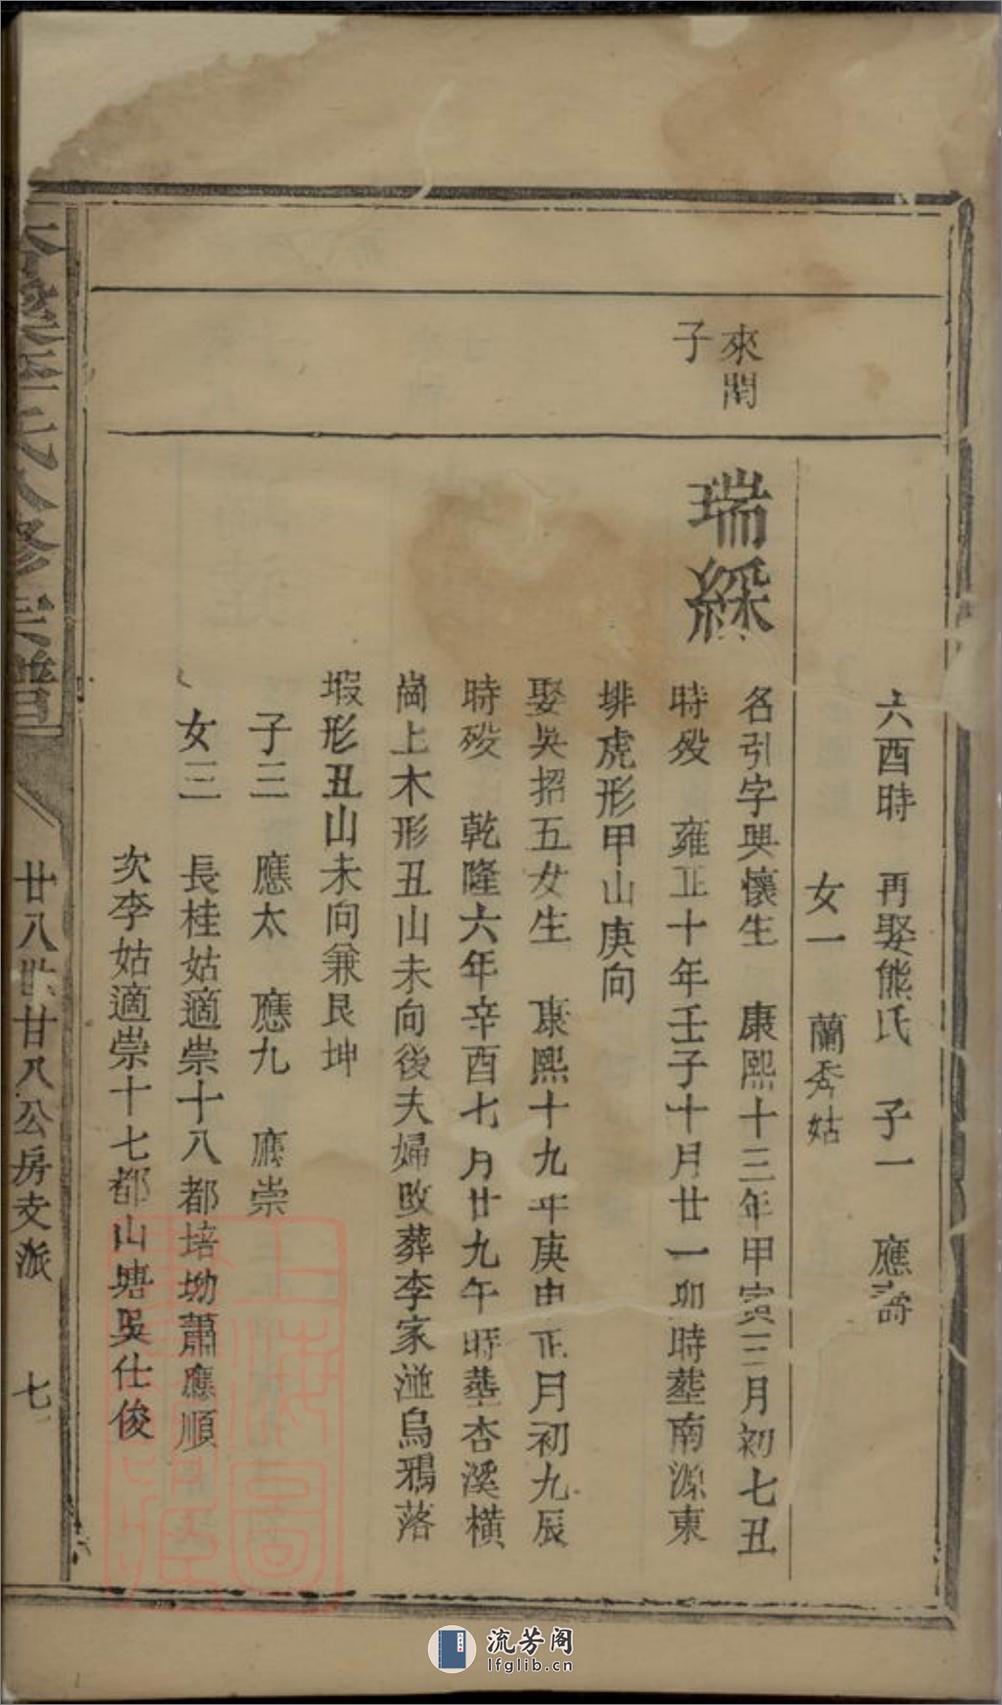 六酉時　再娶熊氏　子一　應詩
女一　蘭秀姑
來閏
子
瑞綵
名引字興懷生　康熙十三年甲寅三月初七丑
時殁　雍正十年壬子十月廿一卯時塟南源東
排虎形甲山庚向
娶吳招五女生　康熙十九年庚申正月初九辰
時殁　乾隆六年辛酉七月廿九午時塟杏溪橫
崗上木形丑山未向後夫婦攺葬李家湴烏鴉落
塅形丑山未向兼艮坤
子三　應太　應九　應崇
女三　長桂姑適崇十八都培坳蕭應順
次李姑適崇十七都山塘吳仕俊
氏八修宗譜
廿八世廿八公房支派　七
上海圖書館藏
流芳阁
lfglib.cn